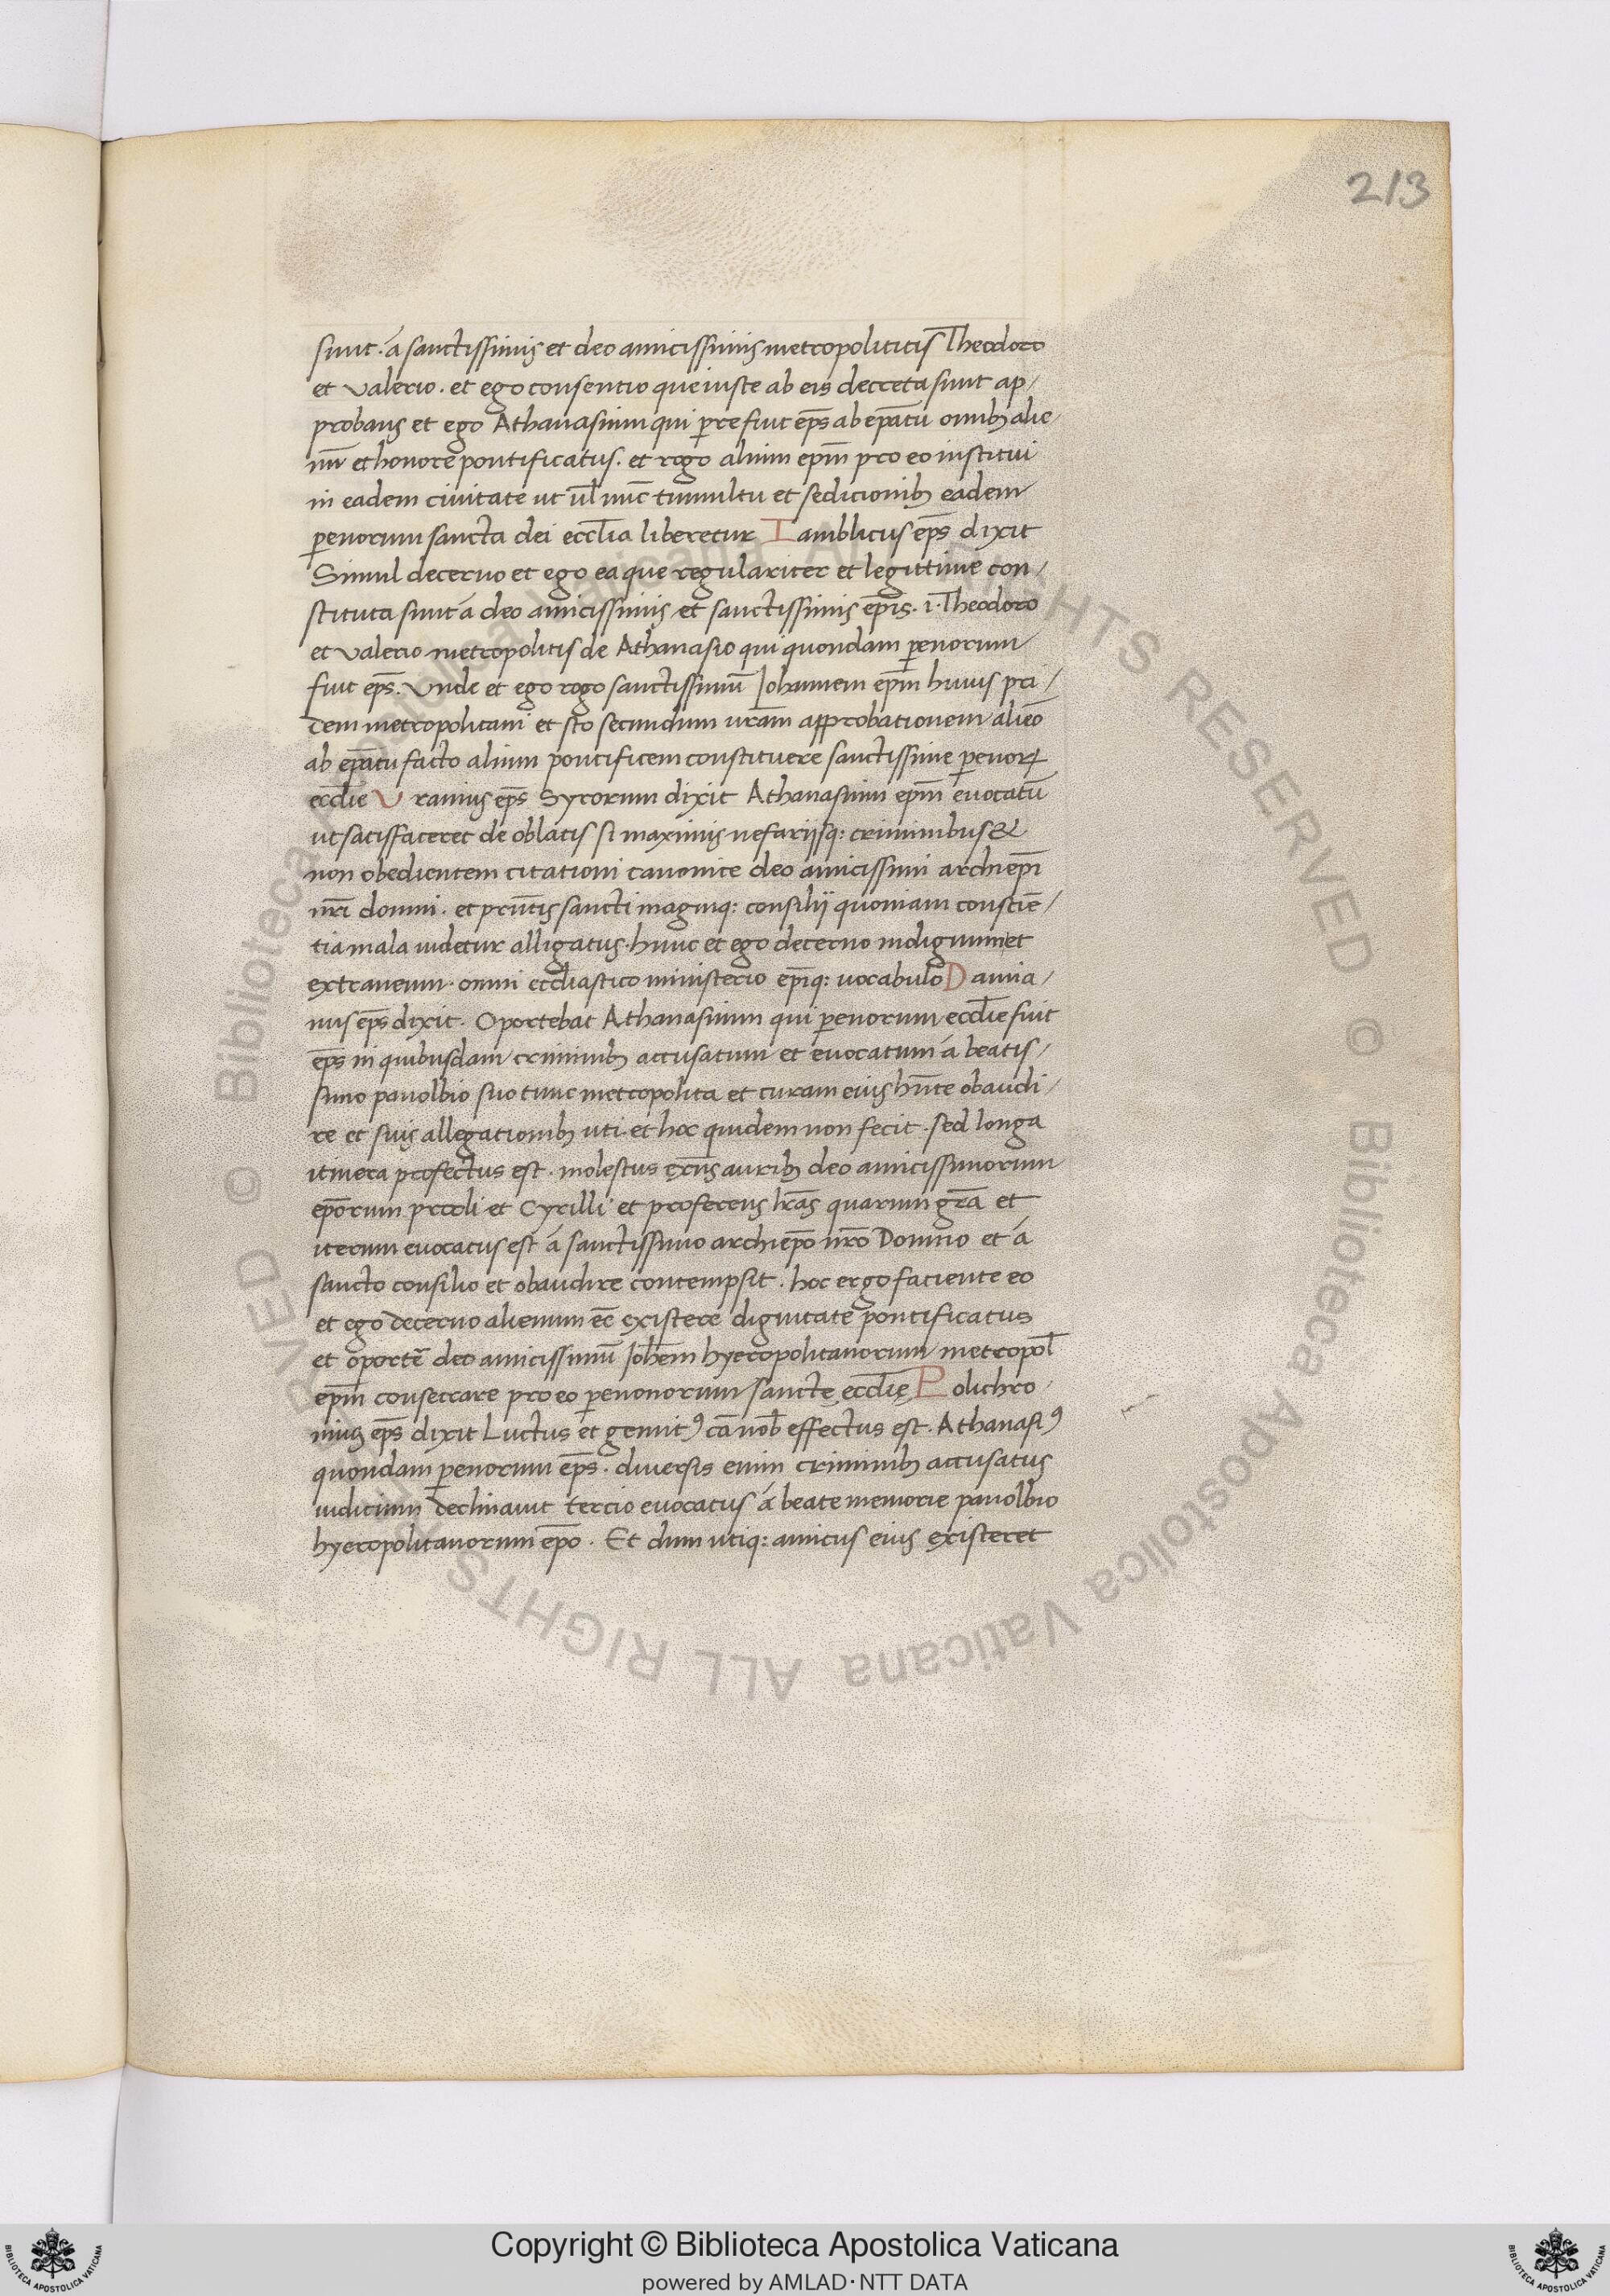 213
sunt. á sanctissimis et deo amicissimis metropolititis Theodoro
et Valerio. et ego consentio que iuste ab eis decreta sunt ap/
probans et ego Athanasium qui perre fuit ep̄s ab ep̄atu omnibꝫ alie
nū et honore pontificatus. et rogo alium ep̄m pro eo institui
in eadem ciuitate ut ul̄ nūc tumultu et sedicionibꝫ eadem
perenorum sancta dei eccl̄ia liberetur Iamblicus ep̄s dixit
Simul decerno et ego ea que regulariter et legittime con/
stituta sunt á deo amicissimis et sanctissimis ep̄is. i. Theodoro
et Valerio metropolitis de Athanasio qui quondam perenorum
fuit ep̄s. Unde et ego rogo sanctissimū Johannem ep̄m huius pri/
dem metropolitani et sto secundum ur̄am approbationem alieō
ab ep̄atu facto alium pontificem constituere sanctissime perenoꝝ
eccl̄ie Uranius ep̄s Syrorum dixit Athanasium ep̄m euocatū
ut satisfaceret de oblatis si maximis nefariisq: criminibus &
non obedientem citationi canonice deo amicissimi archiep̄i
nr̄i domni. et pn̄tis sancti magniq: consilii quoniam consciē/
tia mala uidetur alligatus. hunc et ego decerno indignum et
extraneum. omni eccl̄iastico ministerio ep̄iq: uocabulo Damia/
nus ep̄s dixit. Oportebat Athanasium qui perenorum eccl̄ie fuit
ep̄s in quibusdam criminibꝫ accusatum et euocatum á beatis/
simo panolbio suo tunc metropolita et curam eius hn̄te obaudi/
re et suis allegationibꝫ uti. et hoc quidem non fecit. sed longa
itinera profectus est. molestus exn̄s auribꝫ deo amicissimorum
ep̄orum procli et Cyrilli et proferens lr̄as quarum gr̄a et
iterum euocatus est á sanctissimo archiep̄o nr̄o Domno et á
sancto consilio et obaudire contempsit. hoc ergo faciente eo
et ego decerno alienum eē existere dignitate pontificatus
et oportē deo amicissimū Joh̄em hyeropolitanorum metropol̄
ep̄m consecrare pro eo perenonorum sanctę eccl̄ię Polichro
nius ep̄s dixit Luctus et gemitꝰ cā nob̄ effectus est. Athanasiꝰ
quondam perenorum ep̄s. diuersis enim criminibꝫ accusatus
iudicium declinauit tercio euocatus á beate memorie panolbio
hyeropolitanorum ep̄o. Et dum utiq: amicus eius existeret
Copyright © Biblioteca Apostolica Vaticana
powered by AMLAD·NTT DATA